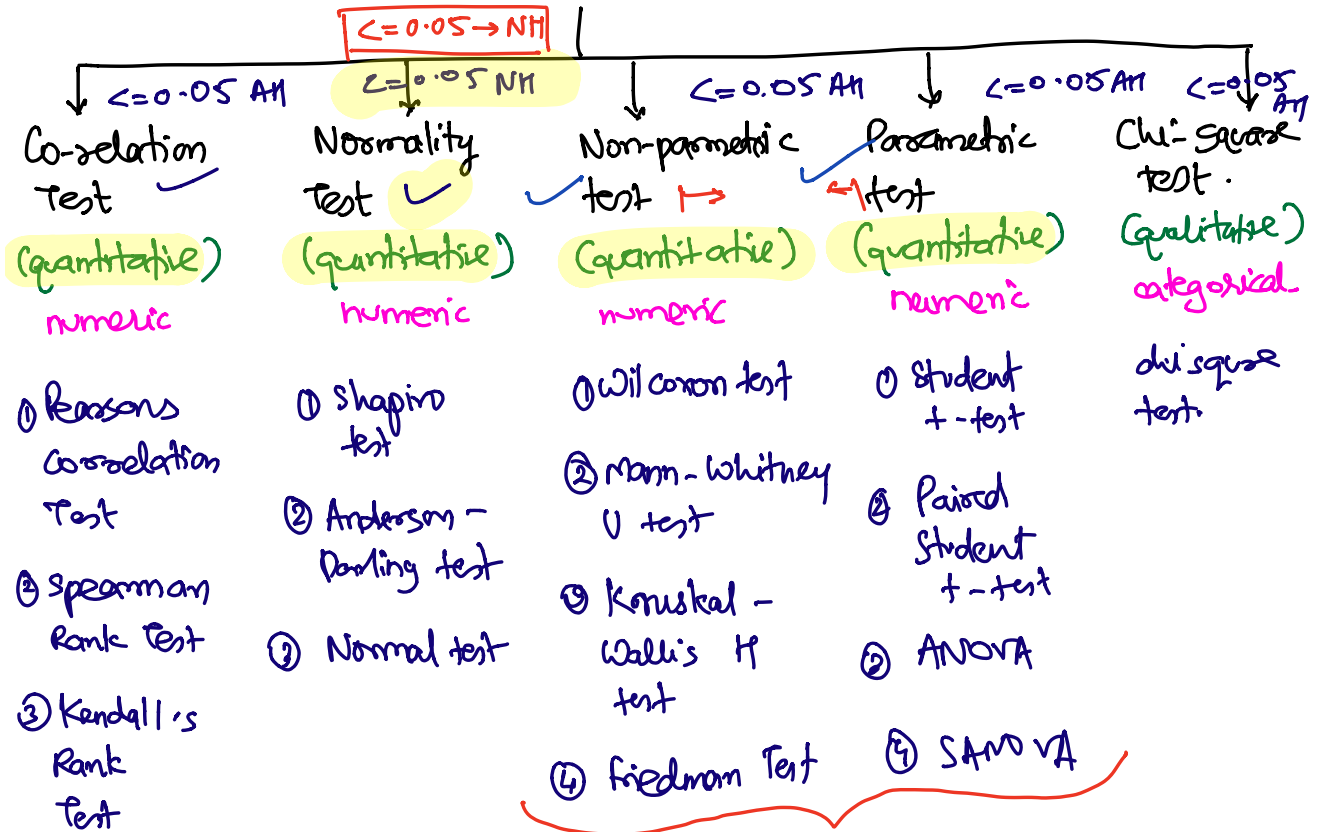 <=0.05→NH
<=0.05 AH
<=0.05 NH
<=0.05 AH
<=0.05 AH
<=0.05
AH
Co-relation
Test
(quantitative)
numeric
① Pearsons
Correlation
Test
② Spearman
Rank Test
③ Kendall's
Rank
Test
Normality
Test
(quantitative)
numeric
① Shapiro
test
② Anderson-
Darling test
③ Normal test
Non-parmetric
test
(quantitative)
numeric
① Wilcoxon test
② Mann-Whitney
U test
③ Kruskal-
Wallis H
test
④ Friedman Test
Parametric
test
(quantitative)
numeric
① Student
t-test
② Paired
Student
t-test
③ ANOVA
④ SANOVA
Chi-Square
test.
(qualitative)
categorical
chisqure
test.